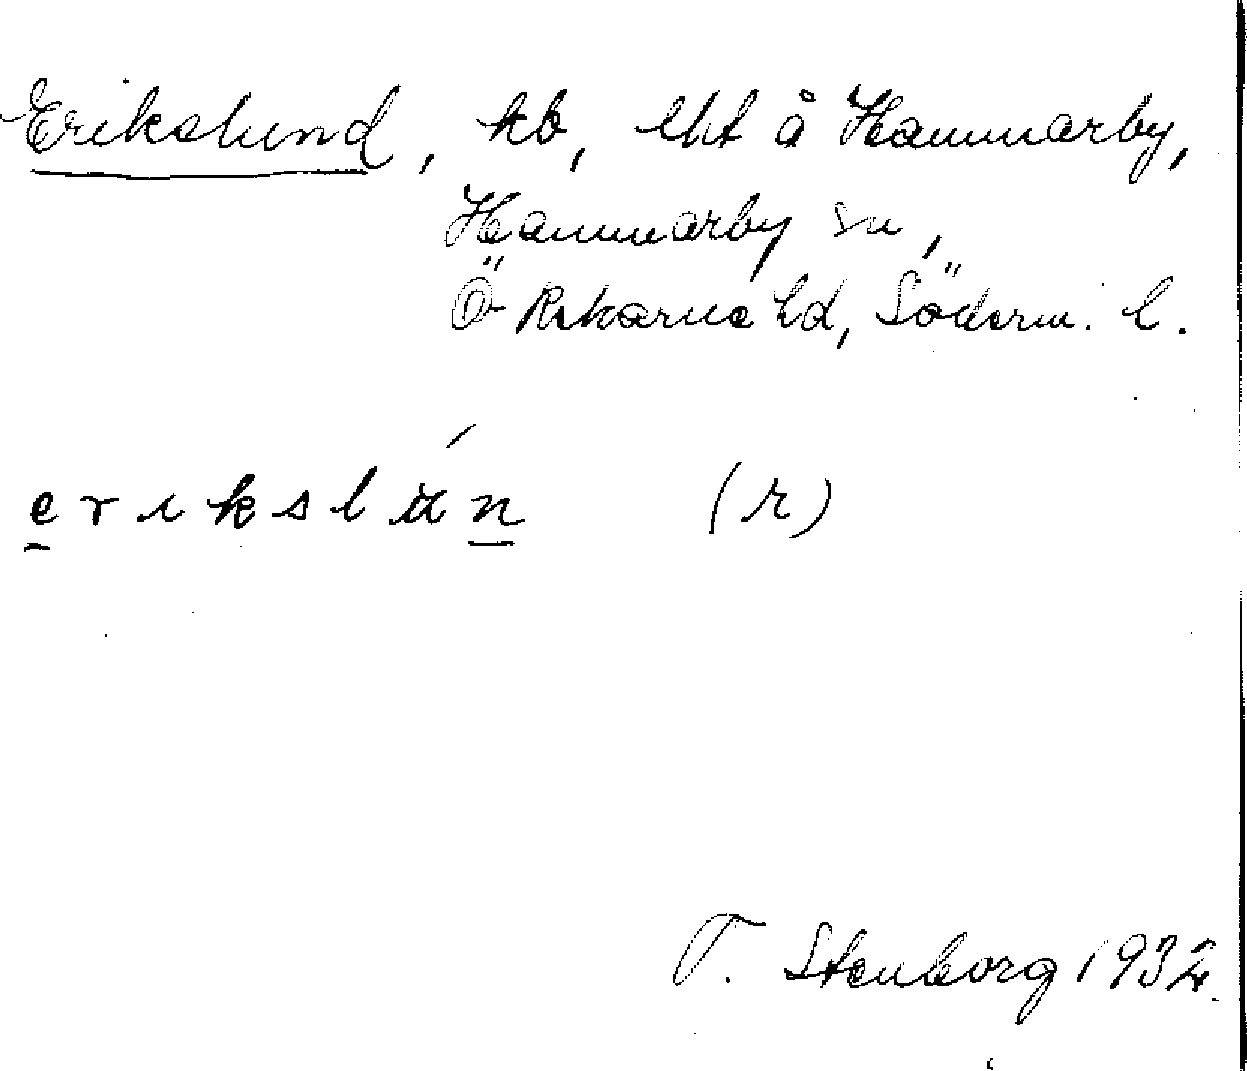 Erikslund, kb, lht å Hammarby,
Hammarby sn,
Ö Rekarne hd, Söderm. l.
erikslun (r)
T. Stenborg 1932.